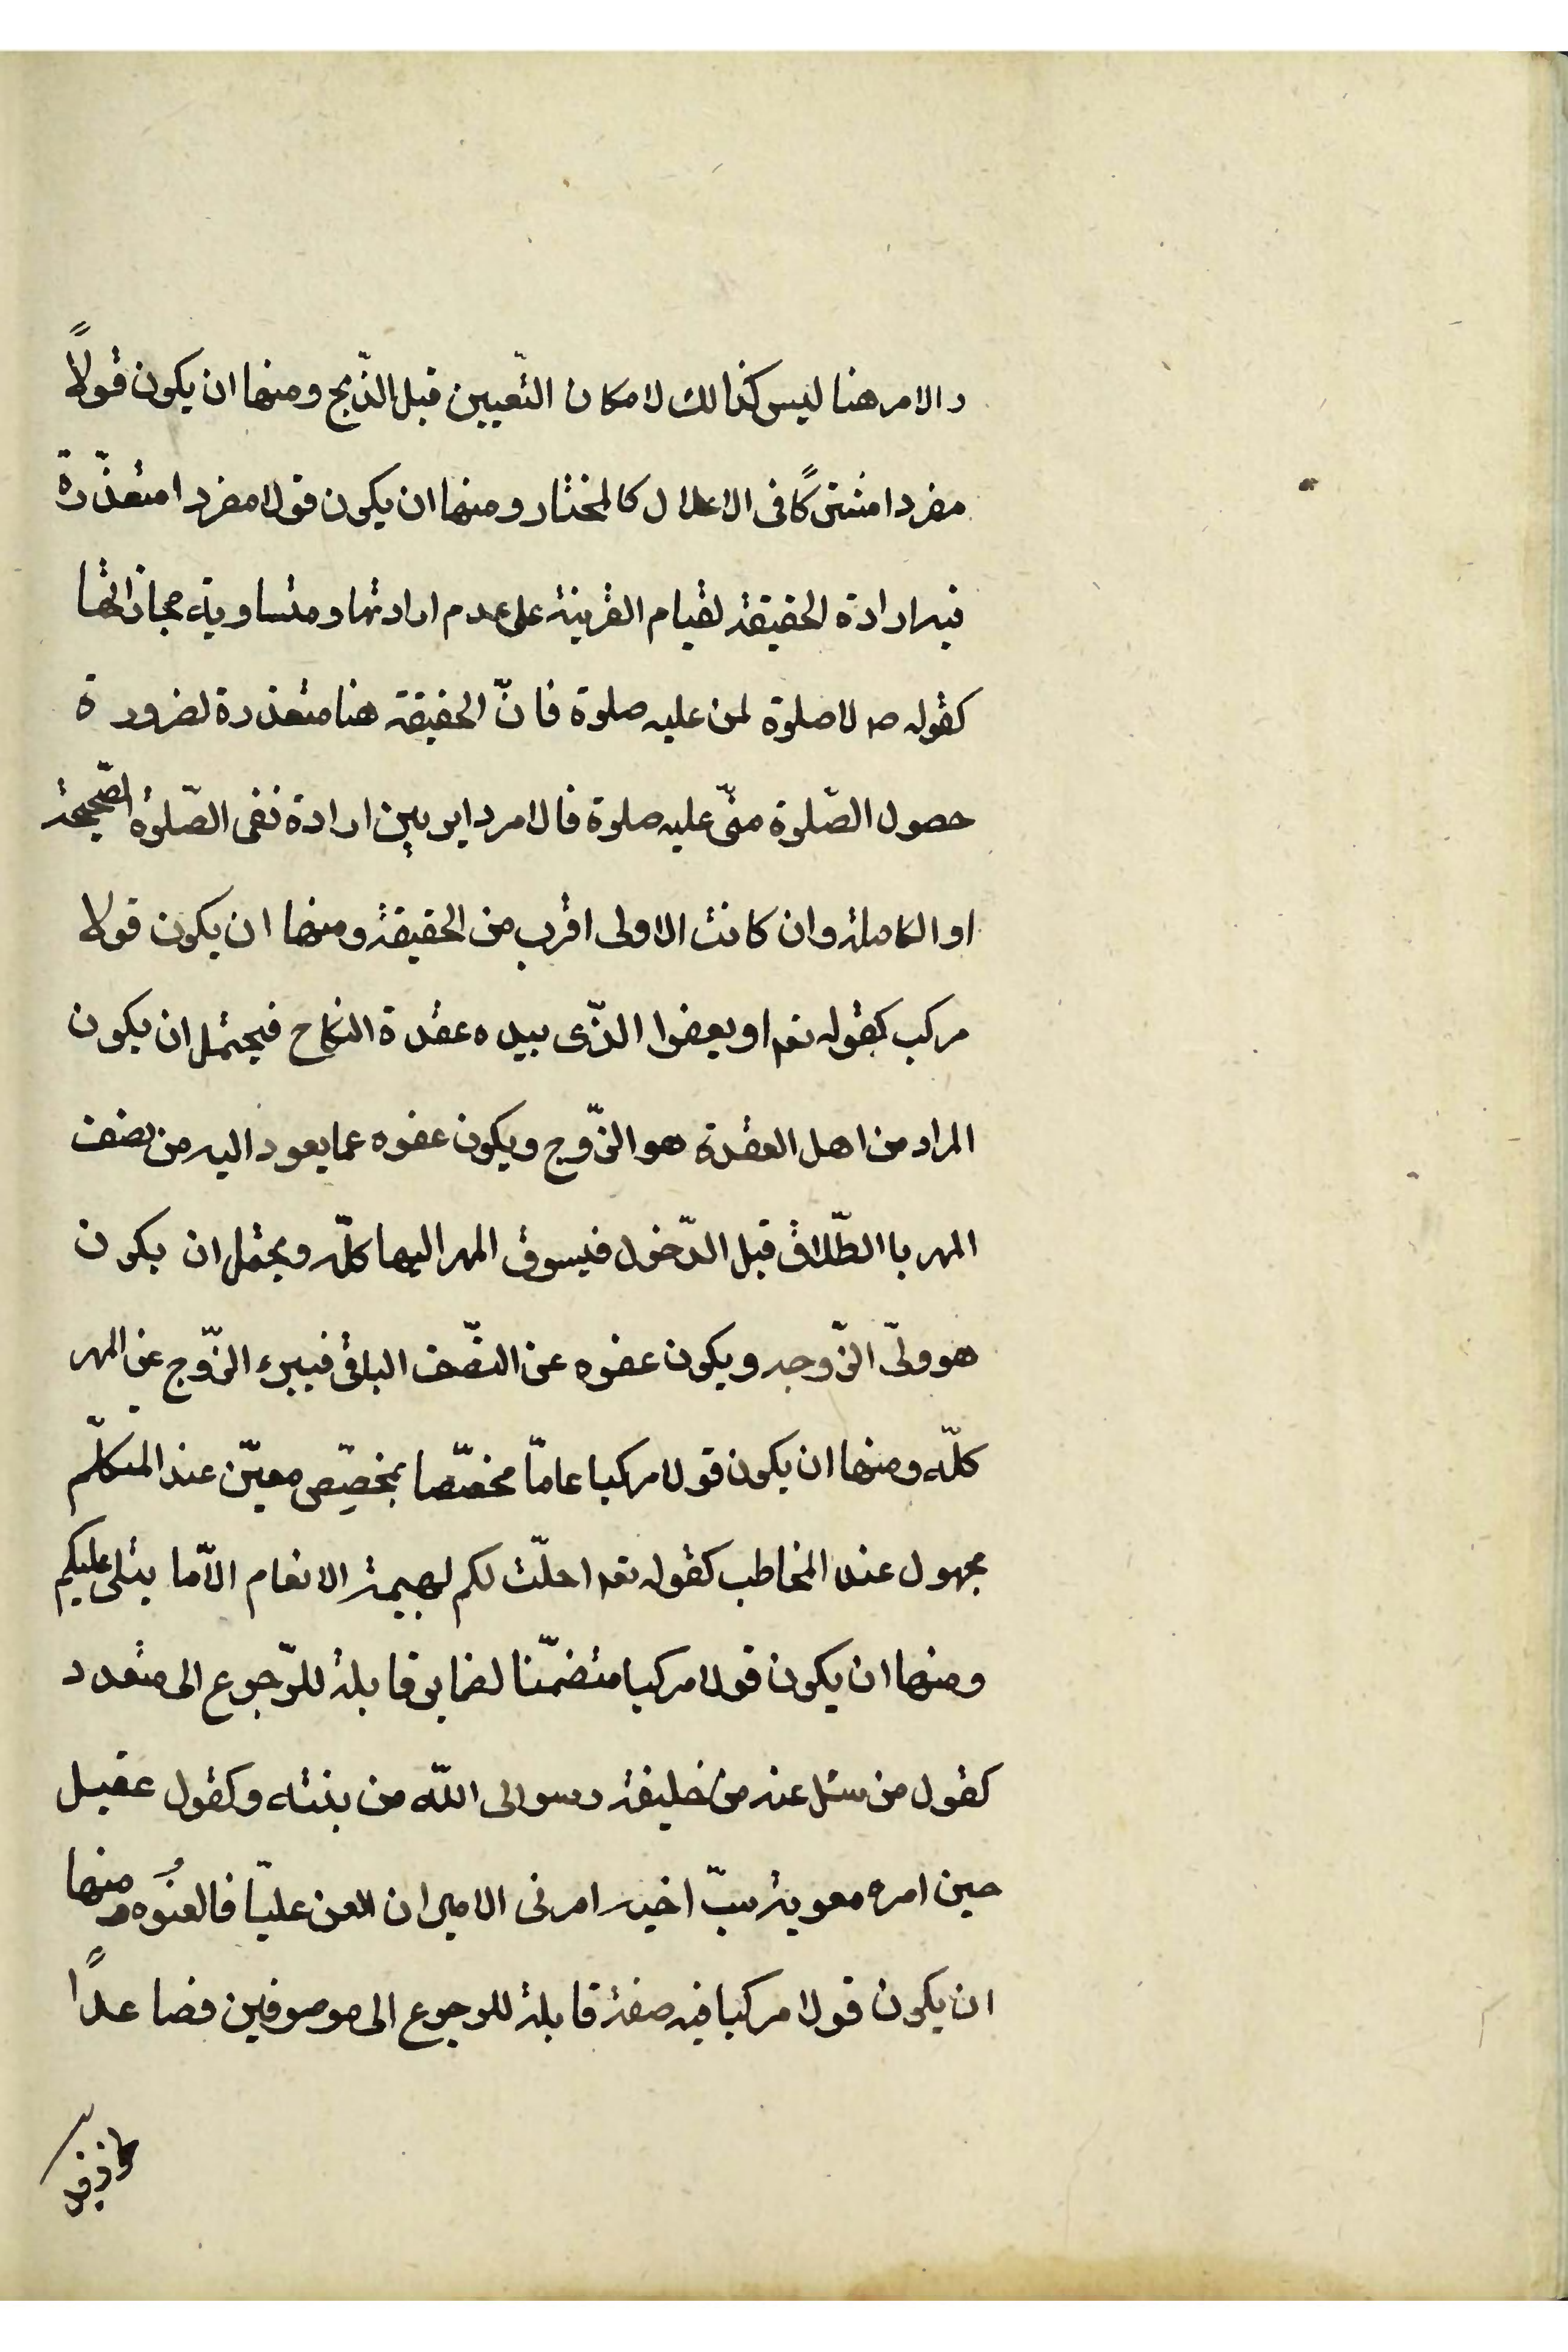 و الامر هنا ليس كذالك لامكان التّعيين قبل الذّبح ومنها ان يكون قولاً
مفردا مشتركًا فى الاعلال كالمختار ومنها ان يكون قولا مفردا متعذّرة
فيه ارادة الحقيقة لقيام القرينة على عدم ارادتها ومتساوية مجازاتها
كقوله ص لا صلوة لمن عليه صلوة فانّ الحقيقة هنا متعذرة لضرورة
حصول الصّلوة منّ عليه صلوة فالامر داير بين ارادة نفى الصّلوة الصّحيحة
او الكاملة وان كانت الاولى اقرب من الحقيقة ومنها ان يكون قولا
مركب كقوله تعه او يعفوا الذّى بيده عقدة النكاح فيحتمل ان يكون
المراد من اهل العقدة هو الزّوج ويكون عفوه عما يعود اليه من نصف
المهر باالطّلاق قبل الدّخول فيسوق المهر اليها كلّه ويحتمل ان يكون
هو ولىّ الزّوجه ويكون عفوه عن النصّف الباقى فيبرء الزّوج عن المهر
كلّه ومنها ان يكون قولا مركبا عامّا مخصّصا بمخصّص معيّن عند المتكلّم
مجهول عند المخاطب كقوله تعه احلّت لكم بهيمة الانعام الّا ما يتلى عليكم
ومنها ان يكون قولا مركبا متضمّنا لضماير قابلة للرّجوع الى متعدد
كقول من سئل عنه من خليفة رسول الله من بنته وكقول عقيل
حين امره معوية بسبّ اخيه امرنى الامير ان العن عليّا فالعنُوه ومنها
ان يكون قولا مركبا فيه صفة قابلة للرجوع الى موصوفين فصاعدًا